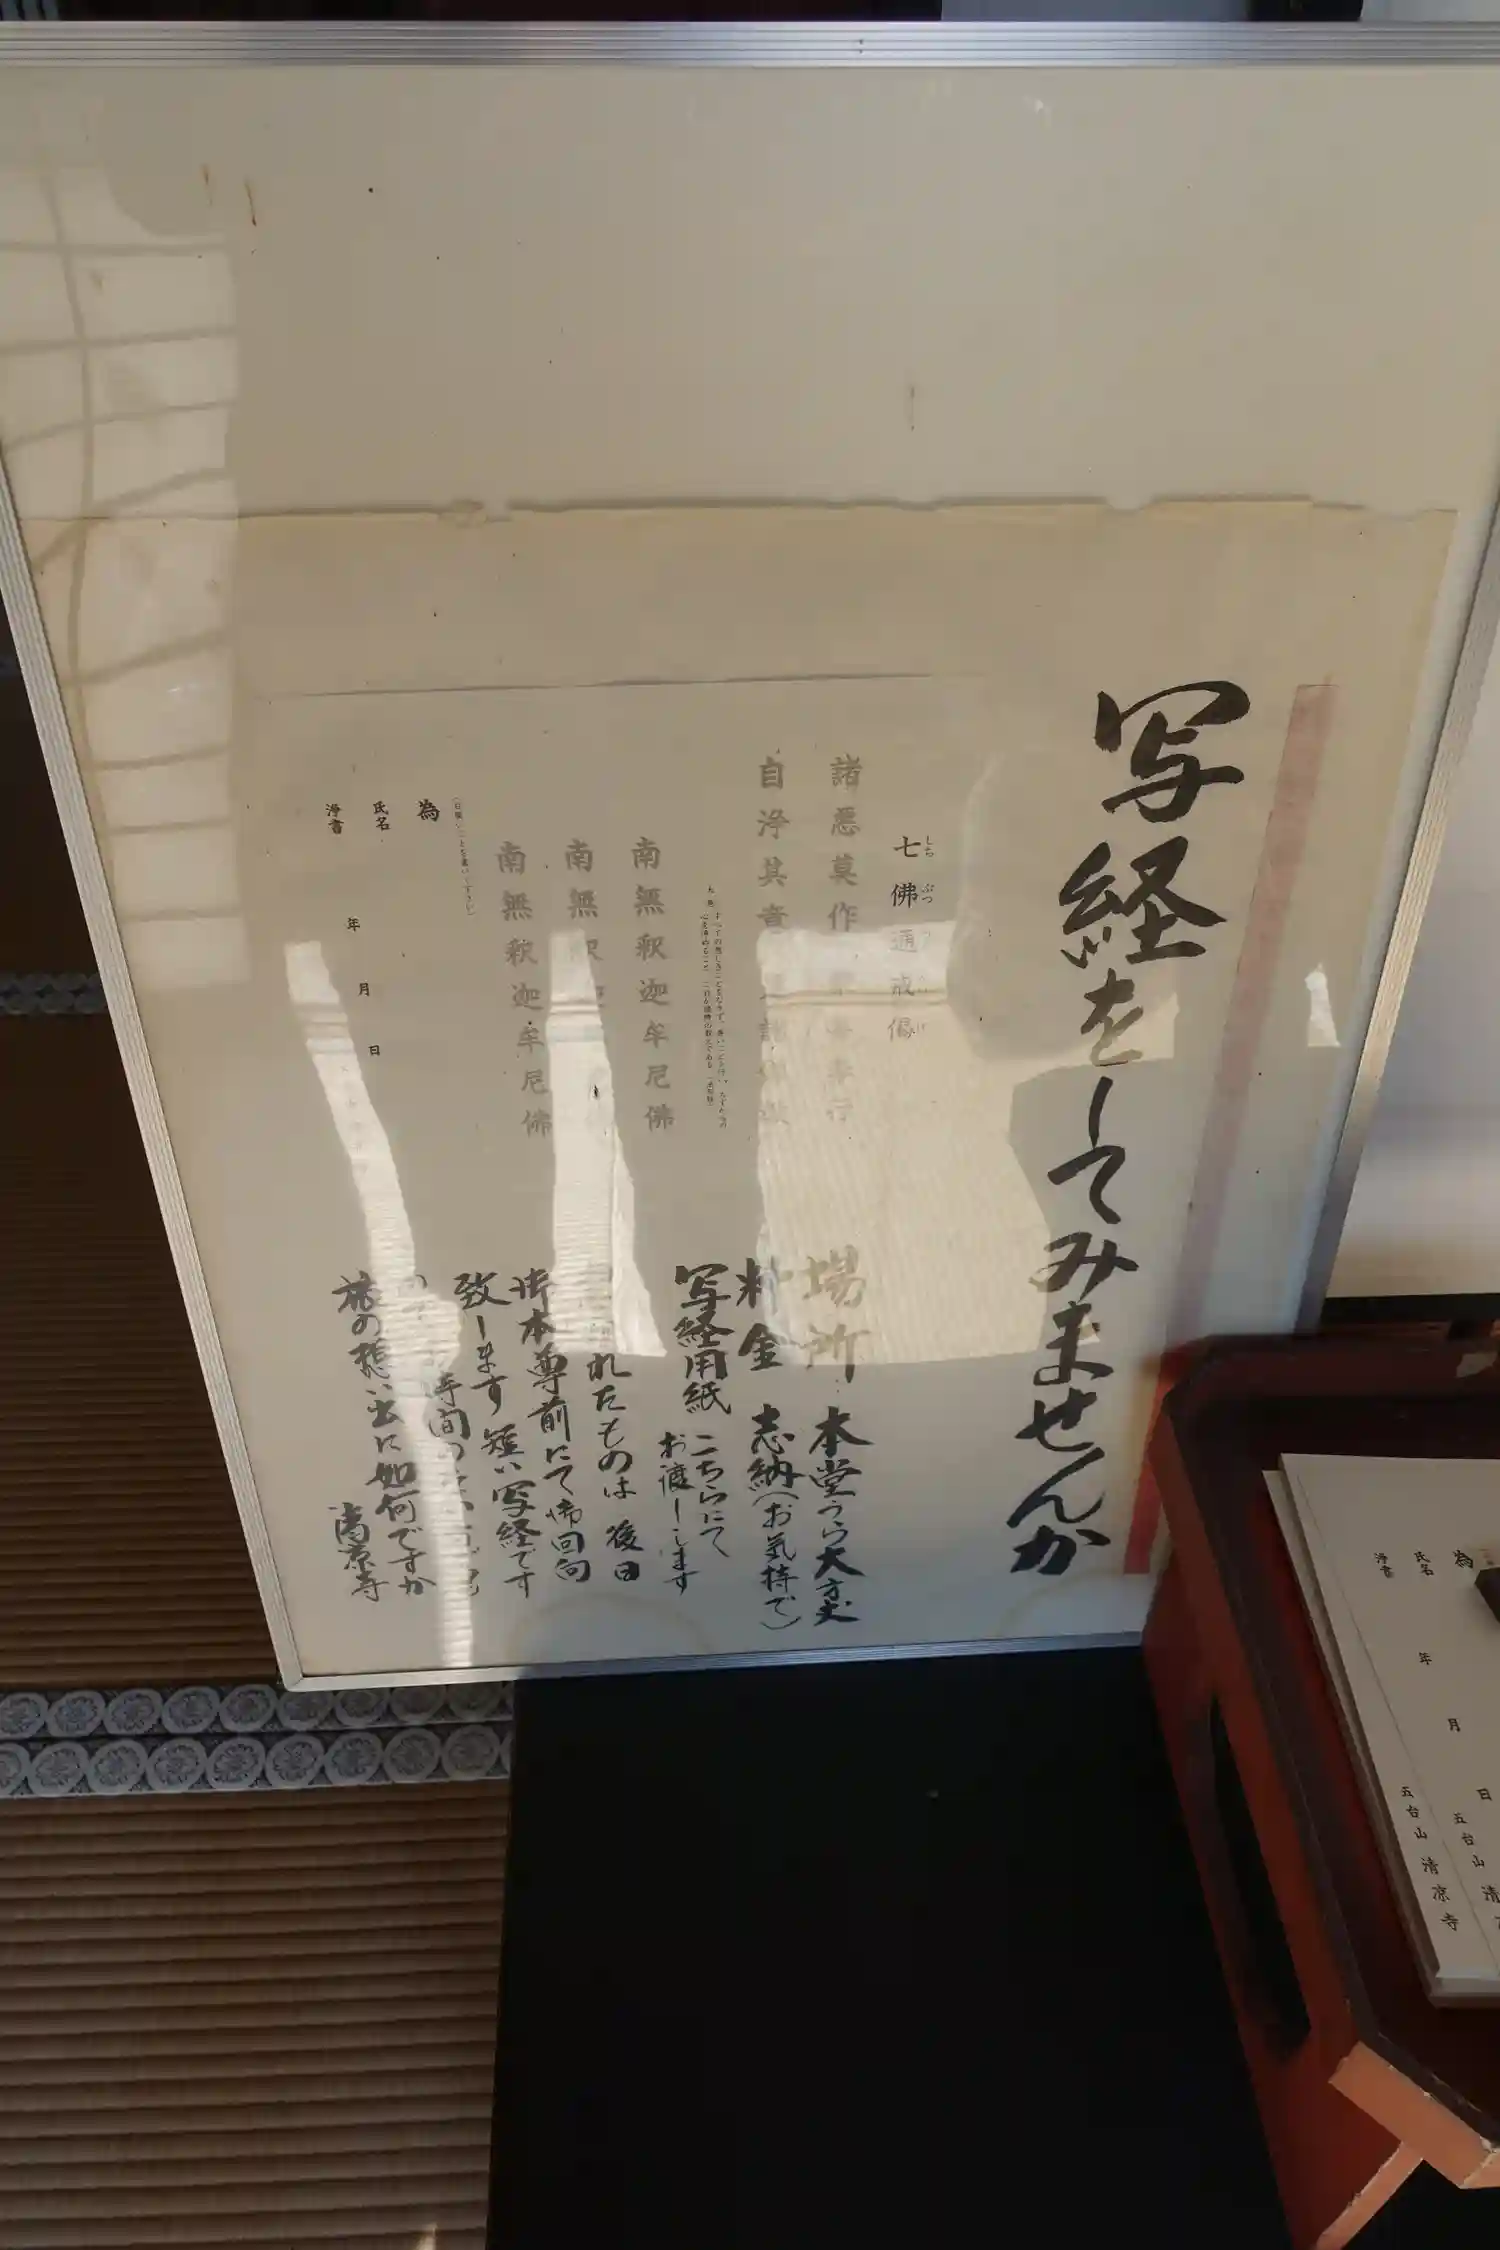 写経をしてみませんか
七佛通戒偈
しち ぶつ
諸悪莫作
奉行
自浄其意
南無釈迦牟尼佛
南無
南無釈迦牟尼佛
為
氏名
浄書
年 月 日
場所 本堂うら大方丈
料金 志納(お気持で)
写経用紙 こちらにて
お渡しします
れたものは 後日
御本尊前にて御回向
致します 短い写経です
時間の
旅の想い出に如何ですか
清凉寺
為
氏名
浄書
年 月 日
五台山 清
五台山 清凉寺